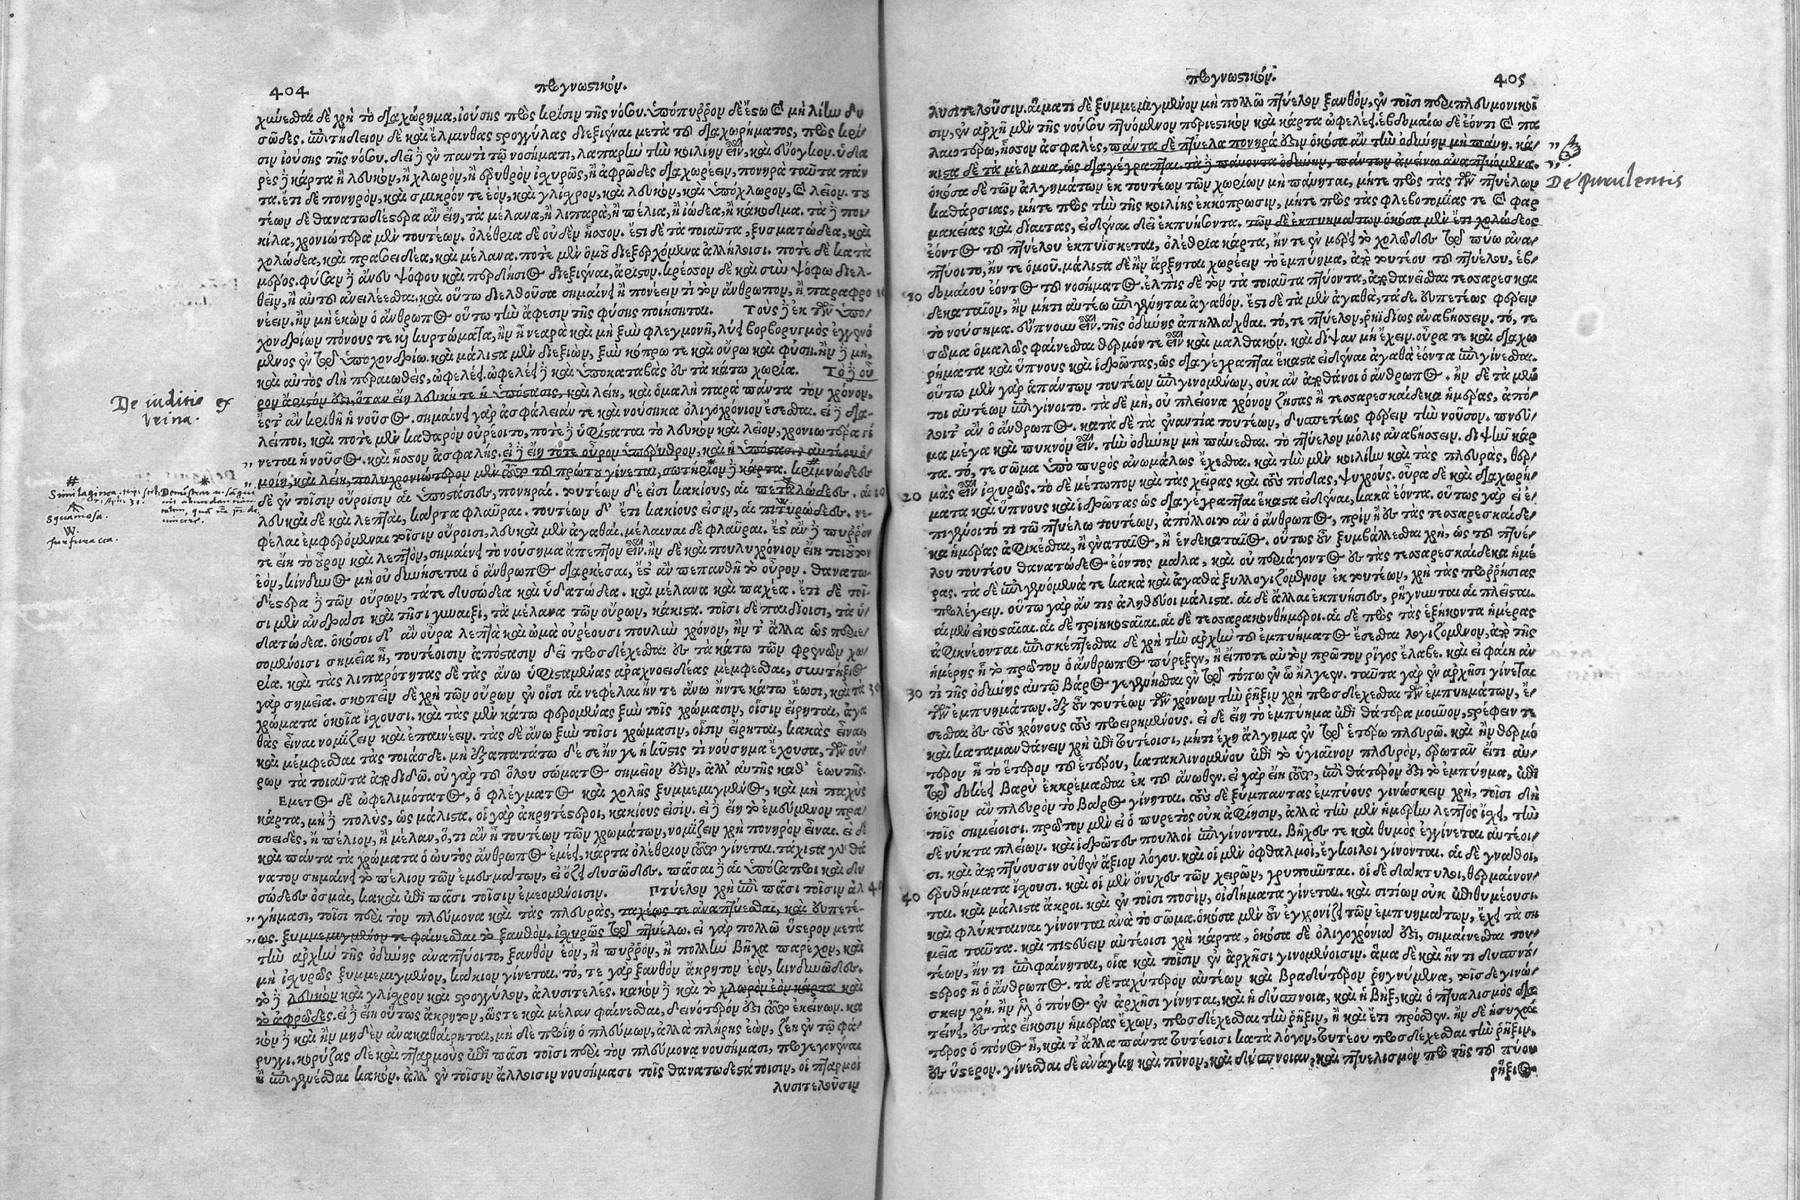 404 προγνωστικόν.
χύνεσθαι δὲ χρὴ τὸ διαχώρημα, ἰούσης πρὸς κρίσιν τῆς νόσου. ὑπόπυῤῥον δὲ ἔστω καὶ μὴ λίην δυσ
σῶδες. ἐπιτήδειον δὲ καὶ ἕλμινθας στρογγύλας διεξιέναι μετὰ τοῦ διαχωρήματος, πρὸς κρί-
σιν ἰούσης τῆς νόσου. δεῖ δὲ ἐν παντὶ τῷ νοσήματι, λαπαρὴν τὴν κοιλίην εἶναι, καὶ εὔογκον. ὑδα
ρὲς δὲ κάρτα ἢ λευκὸν, ἢ χλωρὸν, ἢ ἐρυθρὸν ἰσχυρῶς, ἢ ἀφρῶδες διαχωρέειν, πονηρὰ ταῦτα πάν
τα. ἔτι δὲ πονηρὸν, καὶ σμικρόν τε ἐὸν, καὶ γλίσχρον, καὶ λευκὸν, καὶ ὑπόχλωρον, καὶ λεῖον. του
τέων δὲ θανατωδέστερα ἂν εἴη, τὰ μέλανα, ἢ λιπαρὰ, ἢ πέλια, ἢ ἰώδεα, ἢ κάκοσμα. τὰ δὲ ποι-
κίλα, χρονιώτερα μὲν τουτέων. ὀλέθρια δὲ οὐδὲν ἧσσον. ἔστι δὲ τὰ τοιαῦτα, ξυσματώδεα, καὶ
χολώδεα, καὶ πρασοειδέα, καὶ μέλανα. ποτὲ μὲν ὁμοῦ διεξερχόμενα ἀλλήλοισι. ποτὲ δὲ κατὰ
μέρος. φῦσαν δὲ ἄνευ ψόφου καὶ πορδήσιος διεξιέναι, ἄριστον. κρέσσον δὲ καὶ σὺν ψόφῳ διελ-
θεῖν, ἢ αὐτοῦ ἀνειλέεσθαι. καὶ οὕτω διελθοῦσα σημαίνει ἢ πονέειν τι τὸν ἄνθρωπον, ἢ παραφρο 10
νέειν. ἢν μὴ ἑκὼν ὁ ἄνθρωπος οὕτω τὴν ἄφεσιν τῆς φύσης ποιήσηται. Τοὺς δὲ ἐκ τῶν ὑπο-
χονδρίων πόνους τε καὶ κυρτώματα, ἢν ᾖ νεαρὰ καὶ μὴ ξὺν φλεγμονῇ, λύει βορβορυγμὸς ἐγγενό
μενος ἐν τῷ ὑποχονδρίῳ. καὶ μάλιστα μὲν διεξιὼν, ξὺν κόπρῳ τε καὶ οὔρῳ καὶ φύσῃ. ἢν δὲ μὴ,
καὶ αὐτὸς δὴ περαιωθεὶς, ὠφελέει. ὠφελέει δὲ καὶ ὑποκαταβὰς ἐς τὰ κάτω χωρία. Τὸ δὲ οὖ
ρον ἄριστόν ἐστι, ὅταν εἴη λευκή τε ἡ ὑπόστασις, καὶ λείη, καὶ ὁμαλὴ παρὰ πάντα τὸν χρόνον,
ἔστ' ἂν κριθῇ ἡ νοῦσος. σημαίνει γὰρ ἀσφάλειάν τε καὶ νούσημα ὀλιγοχρόνιον ἔσεσθαι. εἰ δὲ δια-
λείποι, καὶ ποτὲ μὲν καθαρὸν οὐρέοιτο, ποτὲ δὲ ὑφίσταται τὸ λευκὸν καὶ λεῖον, χρονιωτέρα γί
νεται ἡ νοῦσος. καὶ ἧσσον ἀσφαλής. εἰ δὲ εἴη τότε οὖρον ὑπέρυθρον, καὶ ἡ ὑπόστασις αὐτέου ὁ-
μοίη, καὶ λείη, πολυχρονιώτερον μὲν τοῦτο τοῦ πρώτου γίνεται, σωτήριον δὲ κάρτα. κριμνώδεες
δὲ ἐν τοῖσιν οὔροισιν αἱ ὑποστάσιες, πονηραί. τουτέων δέ εἰσι κακίους, αἱ πεταλώδεες. αἱ 20
λευκαὶ δὲ καὶ λεπταὶ, κάρτα φλαῦραι. τουτέων δ' ἔτι κακίους εἰσὶν, αἱ πιτυρώδεες. νε-
φέλαι ἐμφερόμεναι τοῖσιν οὔροισι, λευκαὶ μὲν ἀγαθαί. μέλαιναι δὲ φλαῦραι. ἔστ' ἂν δὲ πυῤῥόν
τε εἴη τὸ οὖρον καὶ λεπτὸν, σημαίνει τὸ νούσημα ἄπεπτον εἶναι. ἢν δὲ καὶ πουλυχρόνιον εἴη τοιοῦτον
ἐὸν, κίνδυνος μὴ οὐ δυνήσεται ὁ ἄνθρωπος διαρκέσαι, ἔστ' ἂν πεπανθῇ τὸ οὖρον. θανατω-
δέστερα δὲ τῶν οὔρων, τά τε δυσώδεα καὶ ὑδατώδεα. καὶ μέλανα καὶ παχέα. ἔτι δὲ τοῖ-
σι μὲν ἀνδράσι καὶ τῇσι γυναιξὶ, τὰ μέλανα τῶν οὔρων, κάκιστα. τοῖσι δὲ παιδίοισι, τὰ ὑ-
δατώδεα. ὁκόσοι δ' ἂν οὖρα λεπτὰ καὶ ὠμὰ οὐρέουσι πουλὺν χρόνον, ἢν τ' ἄλλα ὡς περιε-
σομένοισι σημεῖα ᾖ, τουτέοισιν ἀπόστασιν δεῖ προσδέχεσθαι ἐς τὰ κάτω τῶν φρενῶν χω-
ρία. καὶ τὰς λιπαρότητας δὲ τὰς ἄνω ὑφισταμένας ἀραχνοειδέας μέμφεσθαι, συντήξιος
γὰρ σημεῖα. σκοπεῖν δὲ χρὴ τῶν οὔρων ἐν οἷσι αἱ νεφέλαι ἤν τε ἄνω ἤν τε κάτω ἔωσι, καὶ τὰ 30
χρώματα ὁκοῖα ἴσχουσι. καὶ τὰς μὲν κάτω φερομένας ξὺν τοῖς χρώμασιν, οἷσιν εἴρηται, ἀγα
θὰς εἶναι νομίζειν καὶ ἐπαινέειν. τὰς δὲ ἄνω ξὺν τοῖσι χρώμασιν, οἷσιν εἴρηται, κακὰς εἶναι
καὶ μέμφεσθαι τὰς τοιάσδε. μὴ ἐξαπατάτω δέ σε ἤν γε ἡ κύστις τι νούσημα ἔχουσα, τῶν οὔ-
ρων τὰ τοιαῦτα ἀποδιδῷ. οὐ γὰρ τοῦ ὅλου σώματος σημεῖον ἐστὶν, ἀλλ' αὐτῆς καθ' ἑωυτῆς.
Ἔμετος δὲ ὠφελιμώτατος, ὁ φλέγματος καὶ χολῆς ξυμμεμιγμένος, καὶ μὴ παχὺς
κάρτα, μὴ δὲ πολὺς, ὡς μάλιστα. οἱ γὰρ ἀκρητέστεροι, κακίους εἰσίν. εἰ δὲ εἴη τὸ ἐμεύμενον πρα-
σοειδὲς, ἢ πέλιον, ἢ μέλαν, ὅ,τι ἂν ᾖ τουτέων τῶν χρωμάτων, νομίζειν χρὴ πονηρὸν εἶναι. εἰ δὲ
καὶ πάντα τὰ χρώματα ὁ ωὐτὸς ἄνθρωπος ἐμέει, κάρτα ὀλέθριον τοῦτο γίνεται. τάχιστα γὰρ θά
νατον σημαίνει τὸ πέλιον τῶν ἐμεσμάτων, εἰ ὄζει δυσῶδες. πᾶσαι δὲ αἱ ὑπόσαπροι καὶ δυ
σώδεες ὀσμαὶ, κακαὶ ἐπὶ πᾶσι τοῖσιν ἐμεομένοισιν. Πτύελον χρὴ ἐπὶ πᾶσι τοῖσιν ἀλ 40
γήμασι, τοῖσι περὶ τὸν πλεύμονα καὶ τὰς πλευρὰς, ταχέως τε ἀναπτύεσθαι, καὶ εὐπετέ-
ως. ξυμμεμιγμένον τε φαίνεσθαι τὸ ξανθὸν, ἰσχυρῶς τῷ πτυέλῳ. εἰ γὰρ πολλῷ ὕστερον μετὰ
τὴν ἀρχὴν τῆς ὀδύνης ἀναπτύοιτο, ξανθὸν ἐὸν, ἢ πυῤῥὸν, ἢ πολλὴν βῆχα παρέχον, καὶ
μὴ ἰσχυρῶς ξυμμεμιγμένον, κάκιον γίνεται. τό, τε γὰρ ξανθὸν ἄκρητον ἐὸν, κινδυνῶδες.
τὸ δὲ λευκὸν καὶ γλίσχρον καὶ στρογγύλον, ἀλυσιτελές. κακὸν δὲ καὶ τὸ χλωρὸν ἐὸν κάρτα καὶ
τὸ ἀφρῶδες. εἰ δὲ εἴη οὕτως ἄκρητον, ὥστε καὶ μέλαν φαίνεσθαι, δεινότερόν ἐστι τοῦτο ἐκείνων. κα
κὸν δὲ καὶ ἢν μηδὲν ἀνακαθαίρηται, μηδὲ προΐῃ ὁ πλεύμων, ἀλλὰ πλήρης ἐὼν, ζέῃ ἐν τῷ φά-
ρυγγι. κορύζας δὲ καὶ πταρμοὺς ἐπὶ πᾶσι τοῖσι περὶ τὸν πλεύμονα νουσήμασι, προγεγονέναι
ἢ ἐπιγενέσθαι κακόν. ἀλλ' ἐν τοῖσιν ἄλλοισιν νουσήμασι τοῖς θανατωδεστάτοισιν, οἱ πταρμοὶ
λυσιτελοῦσιν
De iuditio ex
vrina.
Squamosa.
furfuracea.
προγνωστικόν. 405
λυσιτελοῦσιν. αἵματι δὲ ξυμμεμιγμένον μὴ πολλῷ πτύελον ξανθὸν, ἐν τοῖσι περιπλευμονικοῖ
σιν, ἐν ἀρχῇ μὲν τῆς νούσου πτυόμενον περιεστικὸν καὶ κάρτα ὠφελέει. ἑβδομαίῳ δὲ ἐόντι καὶ πα
λαιοτέρῳ, ἧσσον ἀσφαλές. πάντα δὲ πτύελα πονηρά ἐστιν ὁκόσα ἂν τὴν ὀδύνην μὴ παύῃ. κά-
κιστα δὲ τὰ μέλανα, ὡς διαγέγραπται. τὰ δὲ παύοντα ὀδύνην, πάντων ἀμείνω ἀναπτυόμενα.
ὁκόσα δὲ τῶν ἀλγημάτων ἐκ τουτέων τῶν χωρίων μὴ παύηται, μήτε πρὸς τὰς τῶν πτυέλων
καθάρσιας, μήτε πρὸς τὴν τῆς κοιλίης ἐκκόπρωσιν, μήτε πρὸς τὰς φλεβοτομίας τε καὶ φαρ
μακείας καὶ διαίτας, εἰδέναι δεῖ ἐκπυήσοντα. τῶν δὲ ἐκπυημάτων ὁκόσα μὲν ἔτι χολώδεος
ἐόντος τοῦ πτυέλου ἐκπυΐσκεται, ὀλέθρια κάρτα, ἤν τε ἐν μέρει τὸ χολῶδες τῷ πύῳ ἀνα-
πτύοιτο, ἤν τε ὁμοῦ. μάλιστα δὲ ἢν ἄρξηται χωρέειν τὸ ἐμπύημα, ἀπὸ τουτέου τοῦ πτυέλου, ἑβ-
10 δομαίου ἐόντος τοῦ νοσήματος. ἐλπὶς δὲ τὸν τὰ τοιαῦτα πτύοντα, ἀποθανεῖσθαι τεσσαρεσκαι
δεκαταῖον, ἢν μήτι αὐτέῳ ἐπιγένηται ἀγαθόν. ἔστι δὲ τὰ μὲν ἀγαθὰ, τάδε. εὐπετέως φέρειν
τὸ νούσημα. εὔπνουν εἶναι. τῆς ὀδύνης ἀπηλλάχθαι. τό, τε πτύελον, ῥηϊδίως ἀναβήσσειν. τό, τε
σῶμα ὁμαλῶς φαίνεσθαι θερμόν τε εἶναι καὶ μαλθακόν. καὶ δίψαν μὴ ἔχειν. οὖρά τε καὶ διαχω
ρήματα καὶ ὕπνους καὶ ἱδρῶτας, ὡς διαγέγραπται ἕκαστα εἰδέναι ἀγαθὰ ἐόντα ἐπιγίνεσθαι.
οὕτω μὲν γὰρ ἁπάντων τουτέων ἐπιγινομένων, οὐκ ἂν ἀποθάνοι ὁ ἄνθρωπος. ἢν δὲ τὰ μὲν
τοι αὐτέων ἐπιγίνοιτο. τὰ δὲ μὴ, οὐ πλείονα χρόνον ζήσας ἢ τεσσαρεσκαίδεκα ἡμέρας, ἀπό-
λοιτ' ἂν ὁ ἄνθρωπος. κακὰ δὲ τὰ ἐναντία τουτέων, δυσπετέως φέρειν τὴν νοῦσον. πνεῦ-
μα μέγα καὶ πυκνὸν εἶναι. τὴν ὀδύνην μὴ πεπαῦσθαι. τὸ πτύελον μόλις ἀναβήσσειν. διψῆν κάρ
τα. τό, τε σῶμα ὑπὸ πυρὸς ἀνωμάλως ἔχεσθαι. καὶ τὴν μὲν κοιλίην καὶ τὰς πλευρὰς, θερ-
20 μὰς εἶναι ἰσχυρῶς. τὸ δὲ μέτωπον καὶ τὰς χεῖρας καὶ τοὺς πόδας, ψυχρούς. οὖρα δὲ καὶ διαχωρή
ματα καὶ ὕπνους καὶ ἱδρῶτας ὡς διαγέγραπται ἕκαστα εἰδέναι, κακὰ ἐόντα. οὕτως γὰρ εἰ ἐ-
πιγένοιτό τι τῷ πτυέλῳ τουτέων, ἀπόλλοιτο ἂν ὁ ἄνθρωπος, πρὶν ἢ ἐς τὰς τεσσαρεσκαίδε-
κα ἡμέρας ἀφικέσθαι, ἢ ἐναταῖος, ἢ ἑνδεκαταῖος. οὕτως οὖν ξυμβάλλεσθαι χρὴ, ὡς τοῦ πτυέ-
λου τουτέου θανατώδεος ἐόντος μάλα, καὶ οὐ περιάγοντος ἐς τὰς τεσσαρεσκαίδεκα ἡμέ
ρας. τὰ δὲ ἐπιγενόμενά τε κακὰ καὶ ἀγαθὰ ξυλλογιζόμενον ἐκ τουτέων, χρὴ τὰς προῤῥήσιας
προλέγειν. οὕτω γὰρ ἄν τις ἀληθεύοι μάλιστα. αἱ δὲ ἄλλαι ἐκπυήσιες, ῥήγνυνται αἱ πλεῖσται.
αἱ μὲν εἰκοσταῖαι. αἱ δὲ τριηκοσταῖαι. αἱ δὲ τεσσαρακονθήμεροι. αἱ δὲ πρὸς τὰς ἑξήκοντα ἡμέρας
ἀφικνέονται. ἐπισκέπτεσθαι δὲ χρὴ τὴν ἀρχὴν τοῦ ἐμπυήματος ἔσεσθαι λογιζόμενον, ἀπὸ τῆς
ἡμέρης ᾗ τὸ πρῶτον ὁ ἄνθρωπος ἐπύρεξεν, ἢ εἴποτε αὐτὸν πρῶτον ῥῖγος ἔλαβε. καὶ εἰ φαίη ἀν
30 τὶ τῆς ὀδύνης αὐτῷ βάρος γεγενῆσθαι ἐν τῷ τόπῳ ἐν ᾧ ἤλγεεν. ταῦτα γὰρ ἐν ἀρχῇσι γίνεται
τῶν ἐμπυημάτων. ἐξ οὖν τουτέων τῶν χρόνων τὴν ῥῆξιν χρὴ προσδέχεσθαι τῶν ἐμπυημάτων, ἔ-
σεσθαι ἐς τοὺς χρόνους τοὺς προειρημένους. εἰ δὲ εἴη τὸ ἐμπύημα ἐπὶ θάτερα μοῦνον, στρέφειν τε
καὶ καταμανθάνειν χρὴ ἐπὶ τουτέοισι, μήτι ἔχῃ ἄλγημα ἐν τῷ ἑτέρῳ πλευρῷ. καὶ ἢν θερμό
τερον ᾖ τὸ ἕτερον τοῦ ἑτέρου, κατακλινομένου ἐπὶ τὸ ὑγιαῖνον πλευρὸν, ἐρωτᾶν εἴ τι αὐ-
τῷ δοκέει βαρὺ ἐκκρέμασθαι ἐκ τοῦ ἄνωθεν. εἰ γὰρ εἴη τοῦτο, ἐπὶ θάτερόν ἐστι τὸ ἐμπύημα, ἐπὶ
ὁκοῖον ἂν πλευρὸν τὸ βάρος γίνηται. τοὺς δὲ ξύμπαντας ἐμπύους γινώσκειν χρὴ, τοῖσι δὴ
τοῖς σημείοισι. πρῶτον μὲν εἰ ὁ πυρετὸς οὐκ ἀφίησιν, ἀλλὰ τὴν μὲν ἡμέρην λεπτὸς ἴσχει, τὴν
δὲ νύκτα πλείων. καὶ ἱδρῶτες πουλλοὶ ἐπιγίνονται. βῆχές τε καὶ θυμὸς ἐγγίνεται αὐτέοι-
σι. καὶ ἀποπτύουσιν οὐθὲν ἄξιον λόγου. καὶ οἱ μὲν ὀφθαλμοὶ, ἔγκοιλοι γίνονται. αἱ δὲ γνάθοι,
40 ἐρυθήματα ἴσχουσι. καὶ οἱ μὲν ὄνυχες τῶν χειρῶν, γρυποῦνται. οἱ δὲ δάκτυλοι, θερμαίνον-
ται. καὶ μάλιστα ἄκροι. καὶ ἐν τοῖσι ποσὶν, οἰδήματα γίνεται. καὶ σιτίων οὐκ ἐπιθυμέουσι.
καὶ φλύκταιναι γίνονται ἀνὰ τὸ σῶμα. ὁκόσα μὲν οὖν ἐγχρονίζει τῶν ἐμπυημάτων, ἔχει τὰ ση
μεῖα ταῦτα. καὶ πιστεύειν αὐτέοισι χρὴ κάρτα, ὁκόσα δὲ ὀλιγοχρόνιά ἐστι, σημαίνεσθαι του-
τέων, ἤν τι ἐπιφαίνηται, οἷα καὶ τοῖσιν ἐν ἀρχῇσι γινομένοισιν. ἅμα δὲ καὶ ἤν τι δυσπνού-
στερος ᾖ ὁ ἄνθρωπος. τὰ δὲ ταχύτερον αὐτέων καὶ βραδύτερον ῥηγνύμενα, τοῖσδε γινώ-
σκειν χρή. ἢν μὲν ὁ πόνος ἐν ἀρχῇσι γίνηται, καὶ ἡ δύσπνοια, καὶ ἡ βὴξ, καὶ ὁ πτυαλισμὸς δια
τείνει, ἐς τὰς εἴκοσιν ἡμέρας ἔχων, προσδέχεσθαι τὴν ῥῆξιν, ἢ καὶ ἔτι πρόσθεν. ἢν δὲ ἡσυχαί
τερος ὁ πόνος ᾖ, καὶ τ' ἄλλα πάντα τουτέοισι κατὰ λόγον, τουτέου προσδέχεσθαι τὴν ῥῆξιν,
ἐς ὕστερον. γίνεσθαι δὲ ἀνάγκη καὶ πόνον, καὶ δύσπνοιαν, καὶ πτυελισμὸν πρὸ τῆς τοῦ πύου
ῥήξιος
De purulentis